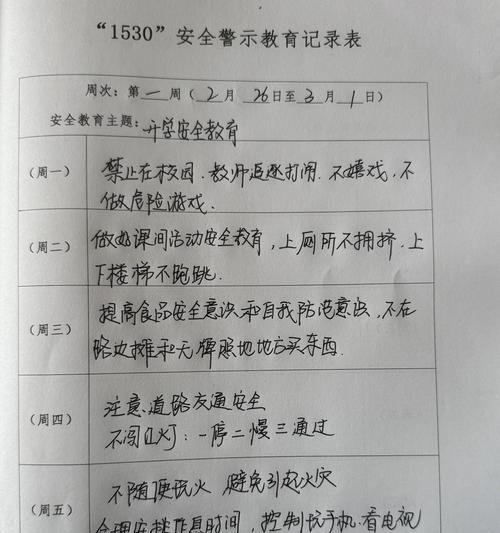 “1530”安全警示教育记录表
周次：第一周（2月 26日至3月1日）
安全教育主题：开学安全教育
（周一）
禁止在校园.教师追逐打闹.不嬉戏,不
做危险游戏.
（周二）
做好课间活动安全教育,上厕所不拥挤.上
下楼梯不跑跳.
（周三）
提高食品安全意识和自我防范意识,不在
路边摊和无牌照地地方买东西.
（周四）
注意道路交通安全
不闯红灯:一停二慢三通过
（周五）
不随便玩火 避免引起火灾
合理安排作息时间,控制玩手机.看电视